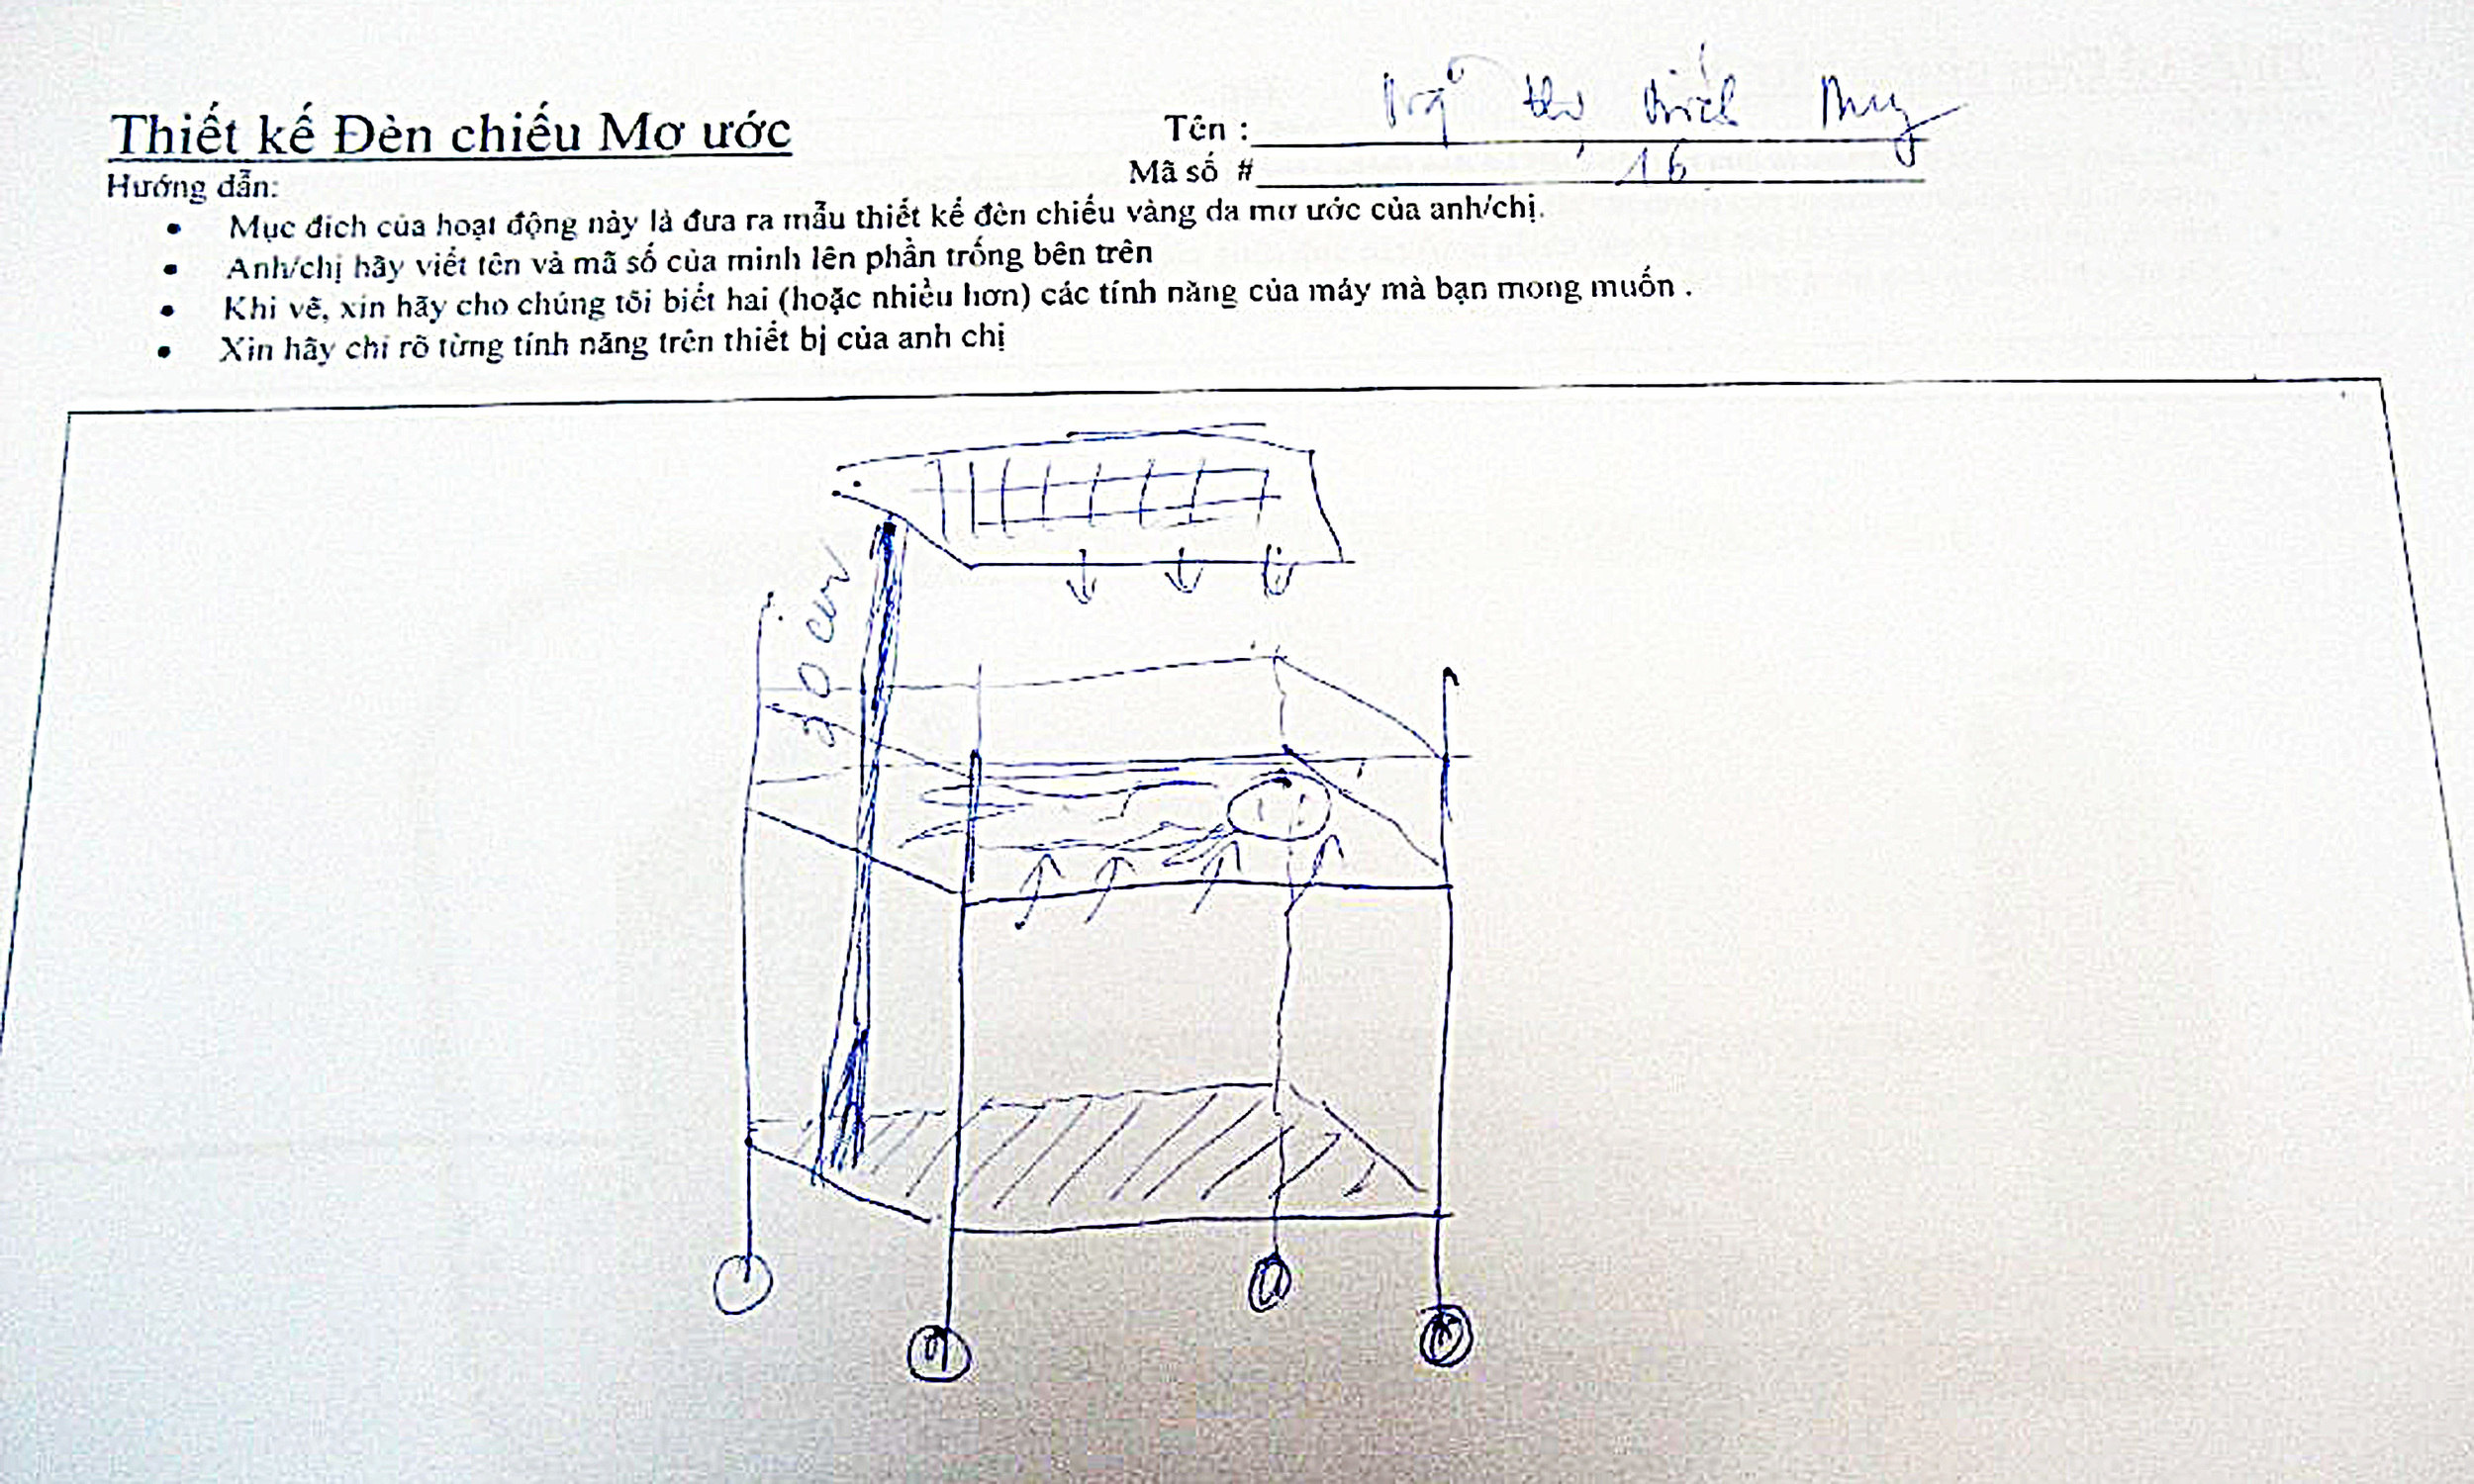 Thiết kế Đèn chiếu Mơ ước
Tên : thị Bích
Mã số # 16
Hướng dẫn:
• Mục đích của hoạt động này là đưa ra mẫu thiết kế đèn chiếu vàng da mơ ước của anh/chị.
• Anh/chị hãy viết tên và mã số của mình lên phần trống bên trên
• Khi vẽ, xin hãy cho chúng tôi biết hai (hoặc nhiều hơn) các tính năng của máy mà bạn mong muốn .
• Xin hãy chỉ rõ từng tính năng trên thiết bị của anh chị
cm